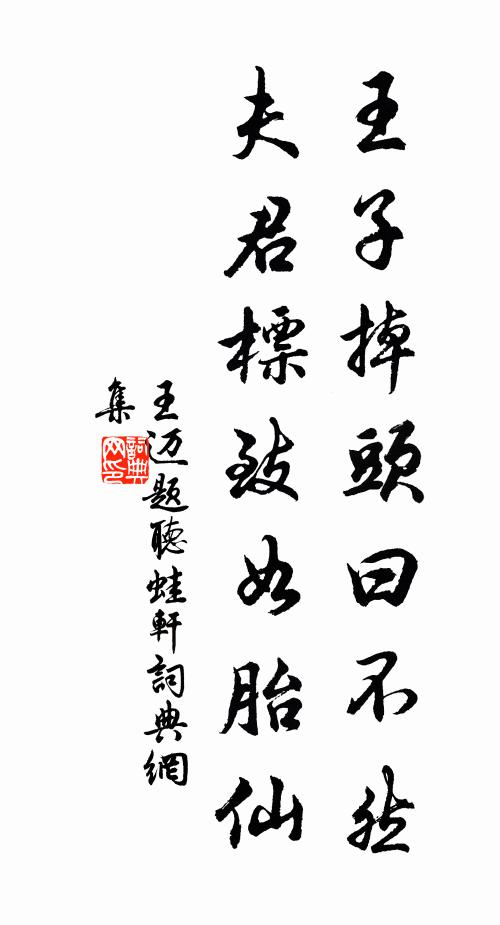 王子掉頭曰不然
夫君標致如胎仙
王迈题聽蛙軒詞典網
集
詞典
网印